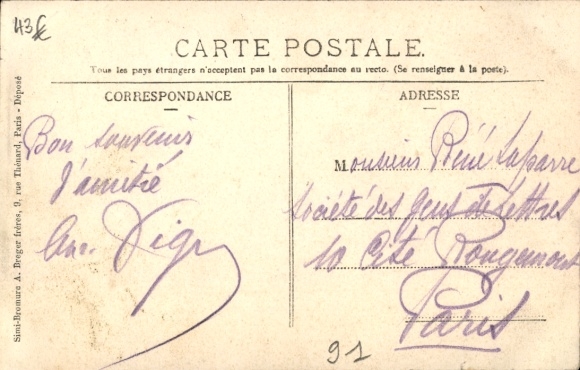 43€
CARTE POSTALE.
Tous les pays étrangers n'acceptent pas la correspondance au recto. (Se renseigner à la poste).
CORRESPONDANCE
Bon souvenir
d'amitié
ADRESSE
Monsieur René Laparre
Société des gens de lettres
10 Cité Rougemont
Paris
91
Simi-Bromure A. Breger frères, 9, rue Thénard, Paris - Déposé